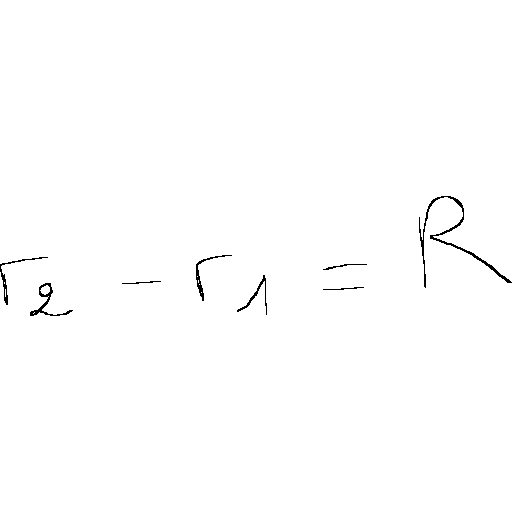 r₂ − r₁ = R